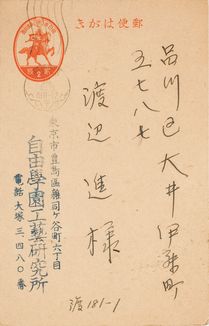 郵便はがき
品川区大井伊藤町
五七八七
渡辺進様
東京市豊島區雜司ヶ谷町六丁目
自由學園工藝研究所
電話大塚三、四八〇番
渡181-1